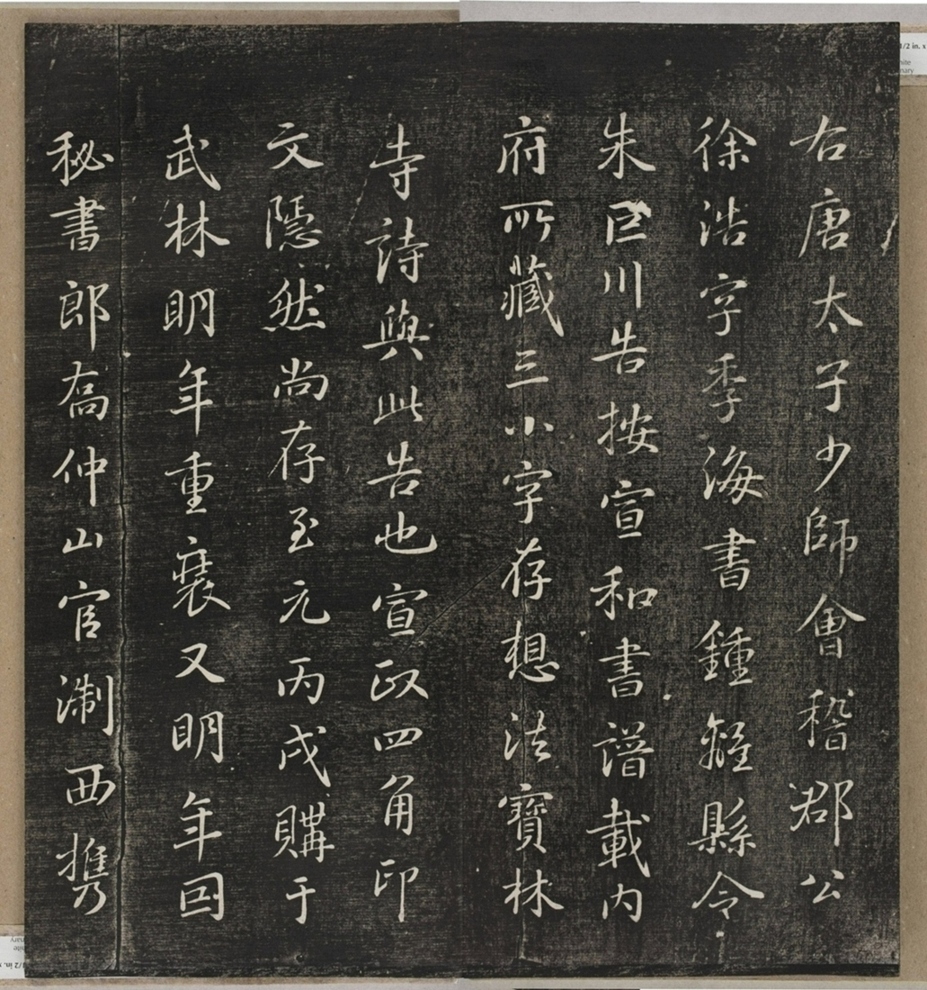 右唐太子少師會稽郡公
徐浩字季海書鍾離縣令
朱巨川告按宣和書譜載内
府所藏三小字存想法寶林
寺詩與此告也宣政四角印
文隱然尚存至元丙戌購于
武林明年重裝又明年囙
秘書郎喬仲山官淛西攜
1/2 in. x